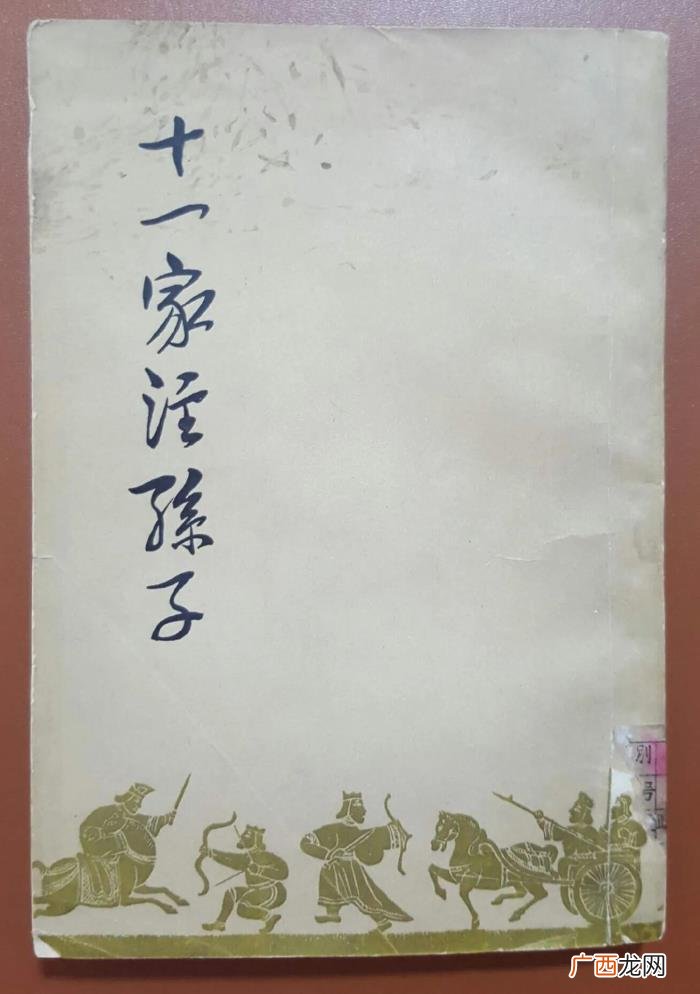 十一家注孫子
別
号
广西龙网